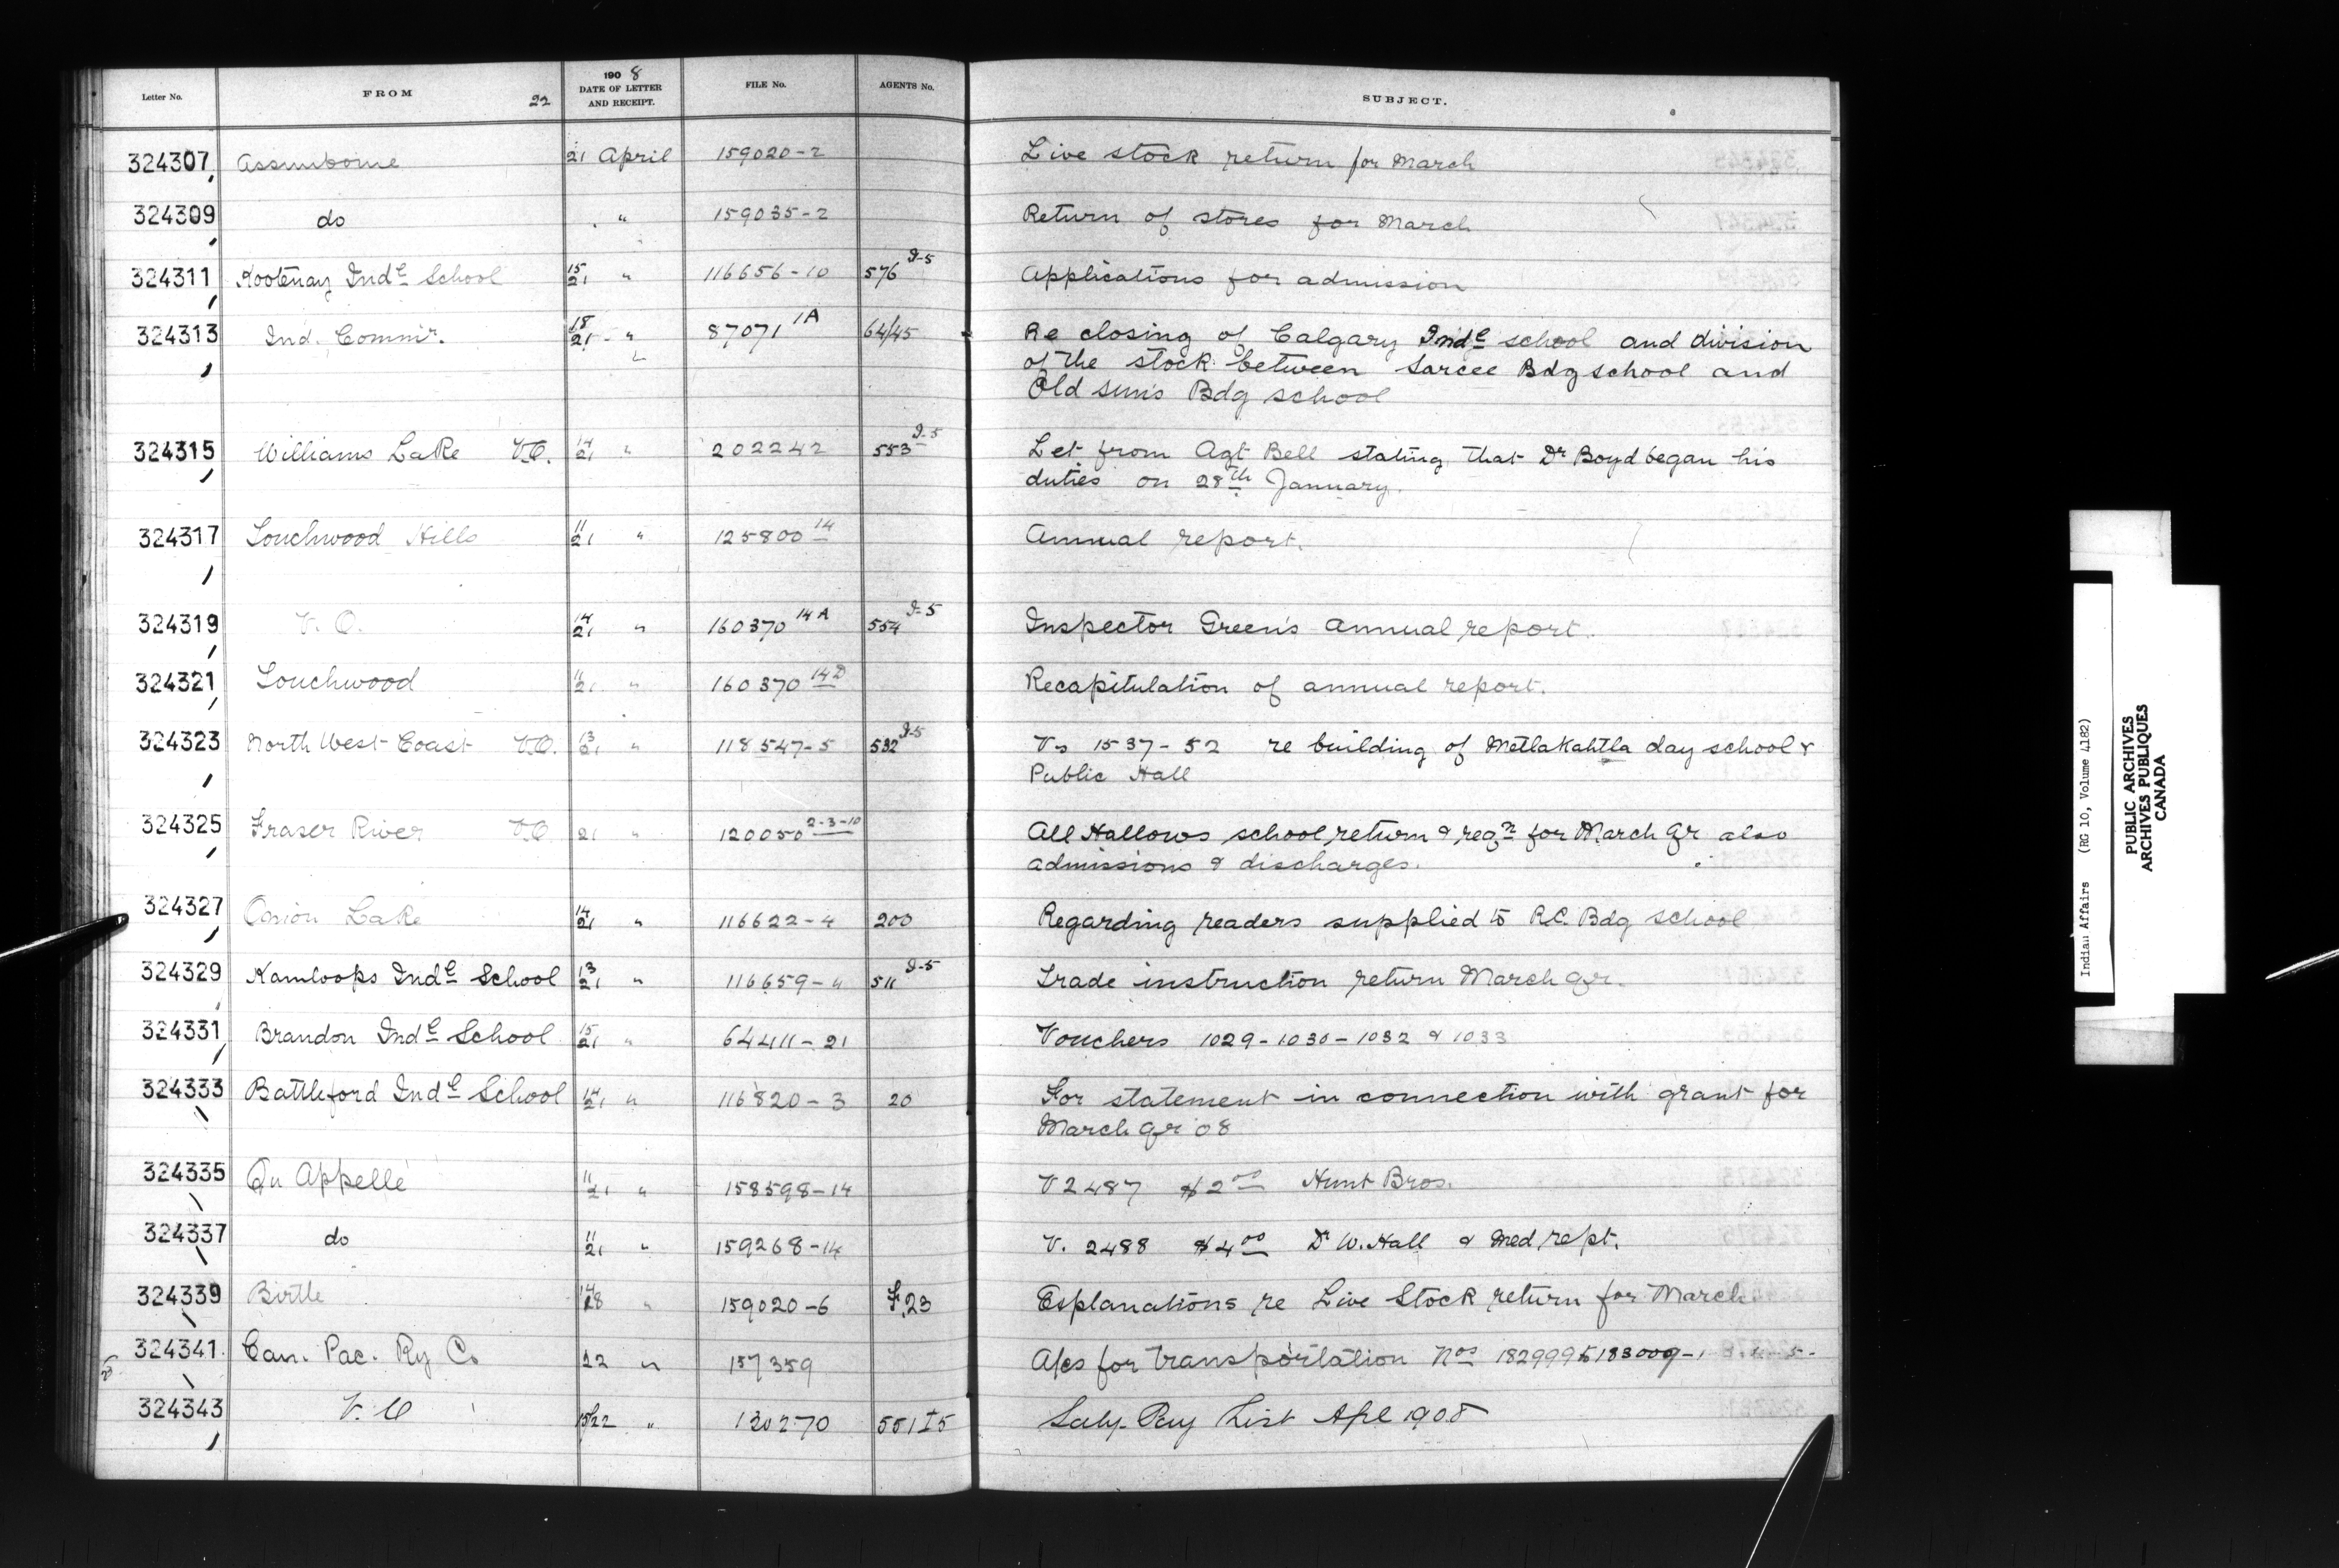 Letter No. FROM 22 1908 DATE OF LETTER AND RECEIPT. FILE No. AGENTS No. SUBJECT.
324307 Assiniboine 21 April 159020-2 Live stock return for March
324309 do " 159035-2 Return of stores for March
324311 Kootenay Indl School 15/21 " 116656-10 576 I-5 Applications for admission
324313 Ind. Commr. 18/21 " 87071 1A 64/45 Re closing of Calgary Indl school and division
of the stock between Sarcee Bdg school and
Old Sun's Bdg school
324315 Williams Lake V.O. 14/21 " 202242 553 I-5 Let from Agt Bell stating that Dr Boyd began his
duties on 28th January.
324317 Touchwood Hills 11/21 " 125800 14 Annual report.
324319 V. O. 14/21 " 160370 14A 554 I-5 Inspector Green's annual report.
324321 Touchwood 11/21 " 160370 14D Recapitulation of annual report.
324323 North West Coast V.O. 13/21 " 118547-5 532 I-5 Vs 1537-52 re building of Metlakahtla day school &
Public Hall
324325 Fraser River V.O. 21 " 120050 2-3-10 All Hallows school return & reqn for March Qr also
admissions & discharges.
324327 Onion Lake 14/21 " 116622-4 200 Regarding readers supplied to R.C. Bdg school
324329 Kamloops Indl School 13/21 " 116659-4 511 I-5 Trade instruction return March Qr.
324331 Brandon Indl School 15/21 " 64411-21 Vouchers 1029-1030-1032 & 1033
324333 Battleford Indl School 14/21 " 116820-3 20 For statement in connection with grant for
March Qr 08
324335 Qu Appelle 11/21 " 158598-14 V 2487 $2.00 Hunt Bros.
324337 do 11/21 " 159268-14 V. 2488 $4.00 Dr W. Hall & Med. rept.
324339 Birtle " 159020-6 F.23 Explanations re Live Stock return for March
324341 Can. Pac. Ry Co 22 " 157359 A/cs for transportation Nos 182999 to 183009-
324343 V. O 15/22 " 130270 551 I5 Saly. Pay List Apl 1908
Indian Affairs (RG 10, Volume 4182)
PUBLIC ARCHIVES
ARCHIVES PUBLIQUES
CANADA